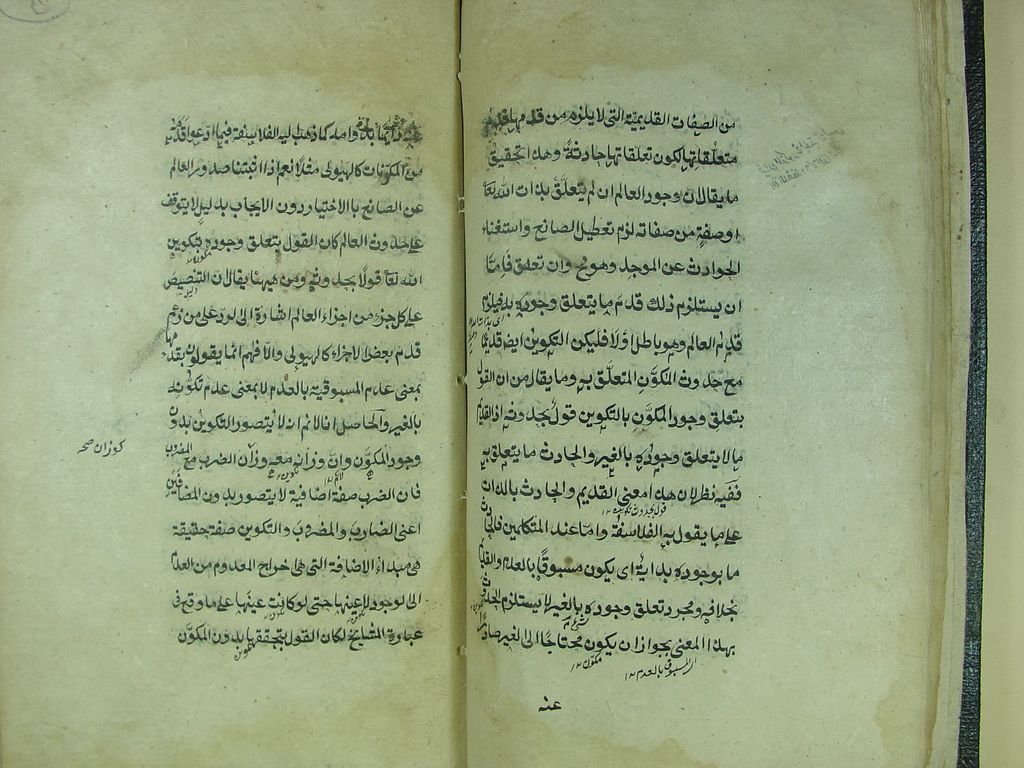 من الصفات القديمة التى لا يلزم من قدمها قدم
متعلقاتها لكون تعلقاتها حادثة وهذا تحقيق
ما يقال ان وجود العالم ان لم يتعلق بذات الله تعا
او صفة من صفاته لزم تعطيل الصانع واستغناء
الحوادث عن الموجد وهو مح وان تعلق فاما
ان يستلزم ذلك قدم ما يتعلق وجوده به فيلزم
قدم العالم وهو باطل او لا فليكن التكوين ايض قديما
مع حدوث المكوَّن المتعلق به وما يقال من ان القول
بتعلق وجود المكوَّن بالتكوين قول بحدوثه اذ القديم
ما لا يتعلق وجوده بالغير والحادث ما يتعلق به
ففيه نظر لان هذا معنى القديم والحادث بالذات
على ما يقول به الفلاسفة واما عند المتكلمين فالحادث
ما بوجوده بداية اى يكون مسبوقا بالعدم والقديم
بخلافه ومجرد تعلق وجوده بالغير لا يستلزم الحدوث
بهذا المعنى بجواز ان يكون محتاجا الى الغير صادرا
المسبوق بالعدم ١٢
مكون ١٢
عنه
دائما بدوامه كما ذهب اليه الفلاسفة فيما ادعوا قدمه
من المكونات كالهيولى مثلا نعم اذا اثبتنا صدور العالم
عن الصانع بالاختيار دون الايجاب بدليل لا يتوقف
على حدوث العالم كان القول بتعلق وجوده بتكوين
الله تعا قولا بحدوثه ومن ههنا يقال ان التنصيص
على كل جزء من اجزاء العالم اشارة الى الرد على من زعم
قدم بعض الاجزاء كالهيولى والا فهم انما يقولون بقدمها
بمعنى عدم المسبوقية بالعدم لا بمعنى عدم تكونه
بالغير والحاصل انا لا نم انه لا يتصور التكوين بدون
وجود المكوَّن وان وزانه معه وزان الضرب مع المضروب
كوزان صح
فان الضرب صفة اضافية لا يتصور بدون المضافين
اعنى الضارب والمضروب والتكوين صفة حقيقة
هى مبداء الاضافة التى هى اخراج المعدوم من العدم
الى الوجود لا عينها حتى لو كانت عينها على ما وقع فى
عبارة المشايخ لكان القول بتحققها بدون المكوَّن